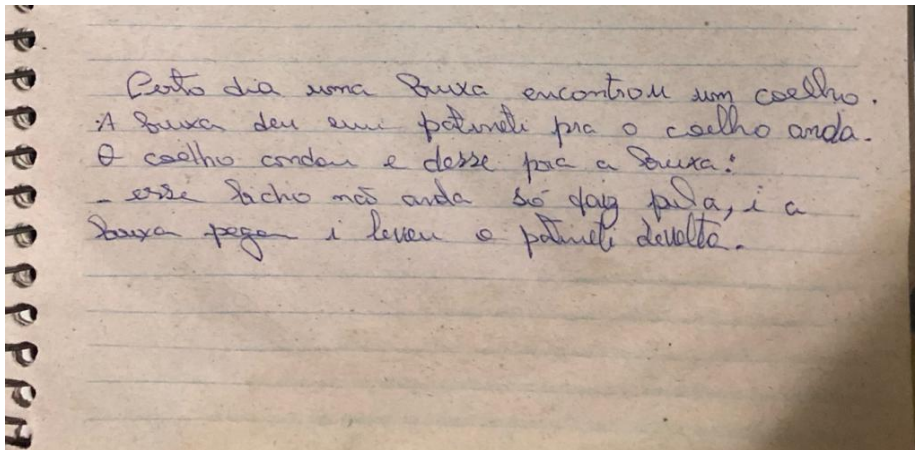 Certo dia uma Bruxa encontrou um coelho.
A Bruxa deu um patineti pra o coelho anda.
O coelho andou e disse pra a Bruxa:
- esse bicho não anda só faiz pula, i a
Bruxa pegou i levou o patineti devolta.